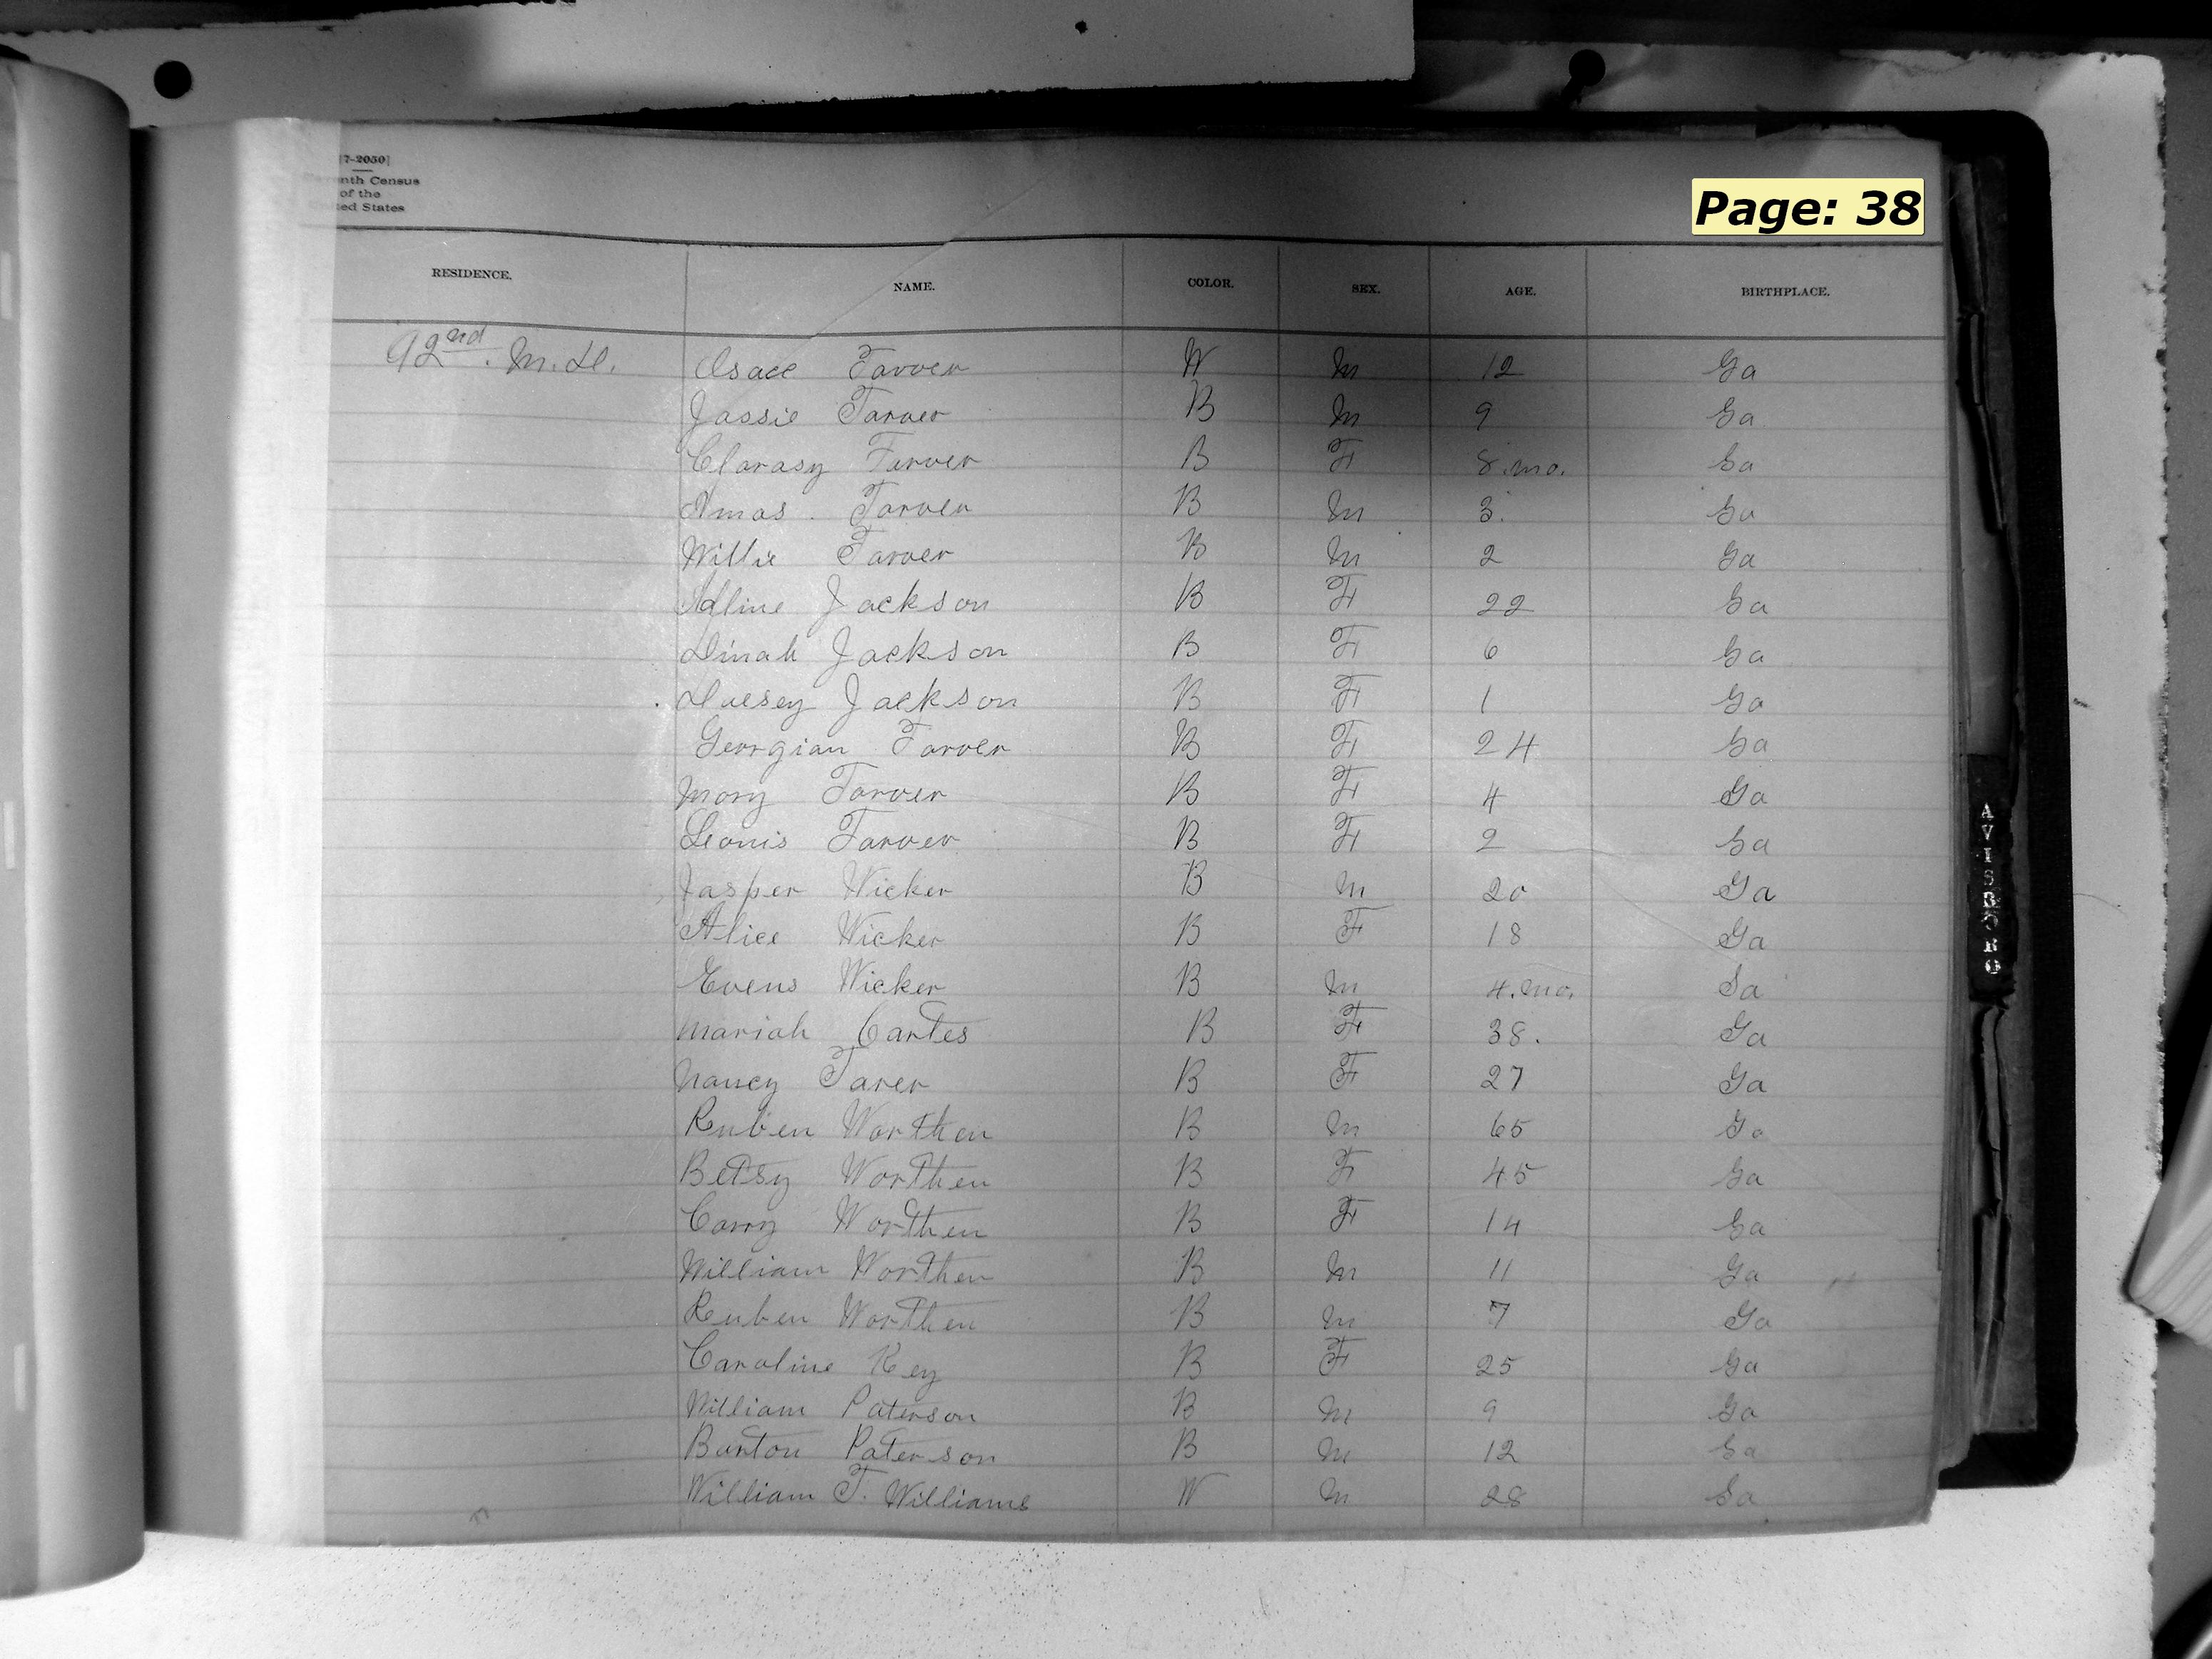 [7-2050]
nth Census
of the
ed States
Page: 38
RESIDENCE. NAME. COLOR. SEX. AGE. BIRTHPLACE.
92nd. M. D. Isace Tarver W M 12 Ga
Jassie Tarver B M 9 Ga
Clarasy Tarver B F 8.mo. Ga
Amas. Tarver B M 3. Ga
Willie Tarver B M 2 Ga
Adline Jackson B F 22 Ga
Dinah Jackson B F 6 Ga
Jackson B F 1 Ga
Georgian Tarver B F 24 Ga
Mary Tarver B F 4 Ga
Leonis Tarver B F 2 Ga
Jasper Wicker B M 20 Ga
Alice Wicker B F 18 Ga
Evens Wicker B M 4.mo. Ga
Mariah Cartes B F 38. Ga
Nancy Tarer B F 27 Ga
Reuben Worthen B M 65 Ga
Betsy Worthen B F 45 Ga
Carry Worthen B F 14 Ga
William Worthen B M 11 Ga
Reuben Worthen B M 7 Ga
Caroline Key B F 25 Ga
William Paterson B M 9 Ga
Burton Paterson B M 12 Ga
William T. Williams W M 28 Ga
AVISBORO